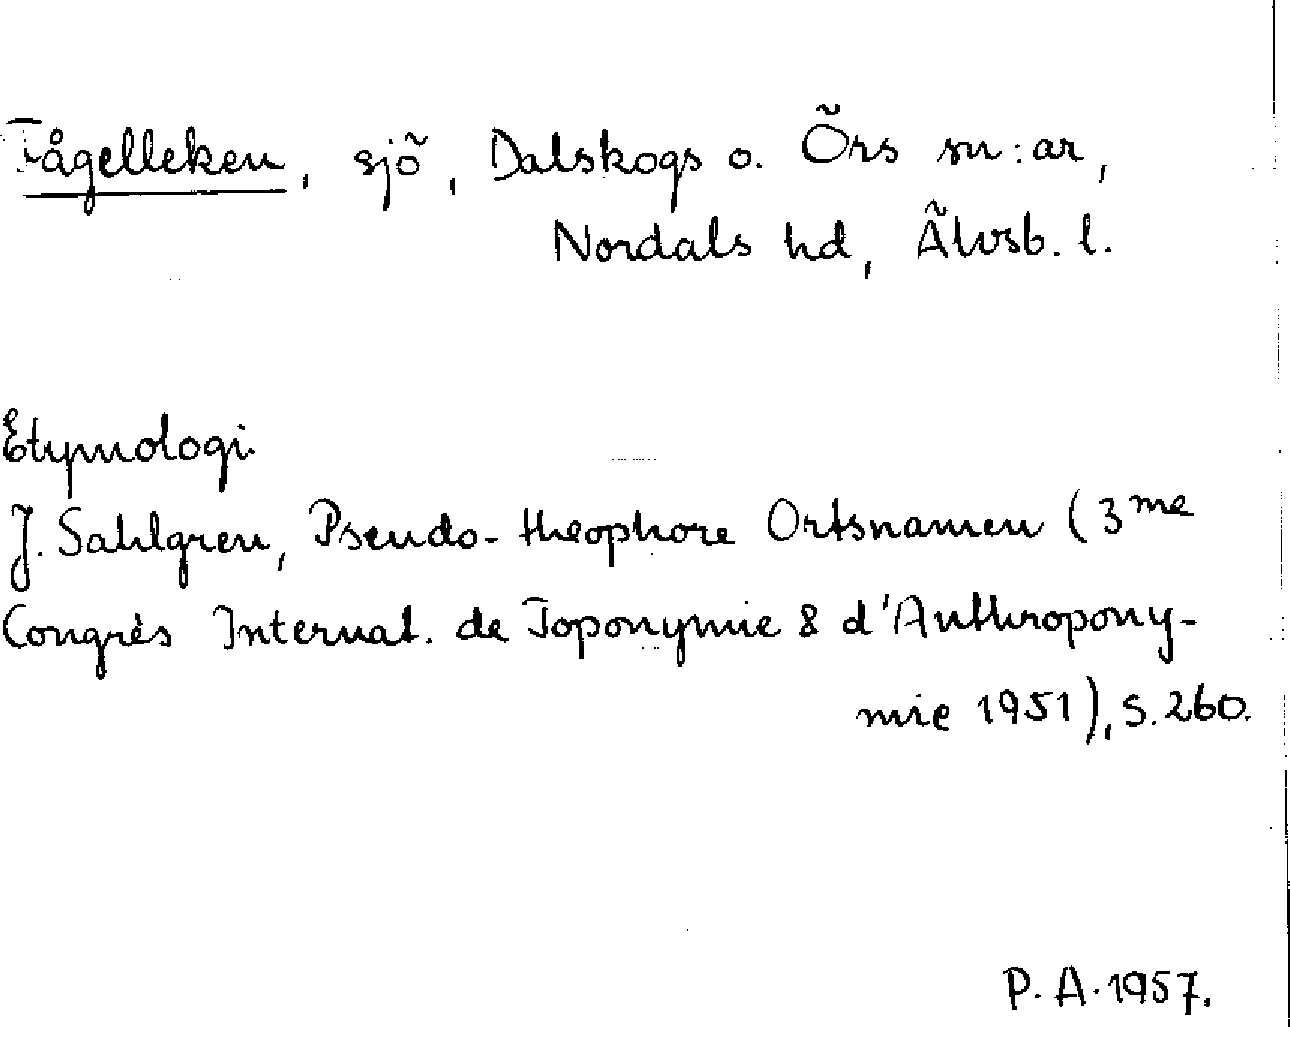 Fågelleken, sjö, Dalskogs o. Örs sn:ar,
Nordals hd, Älvsb. l.
Etymologi
J. Sahlgren, Pseudo-theophore Ortsnamen (3me
Congrès Internat. de Toponymie & d'Anthropony-
mie 1951), S. 260.
P. A. 1957.